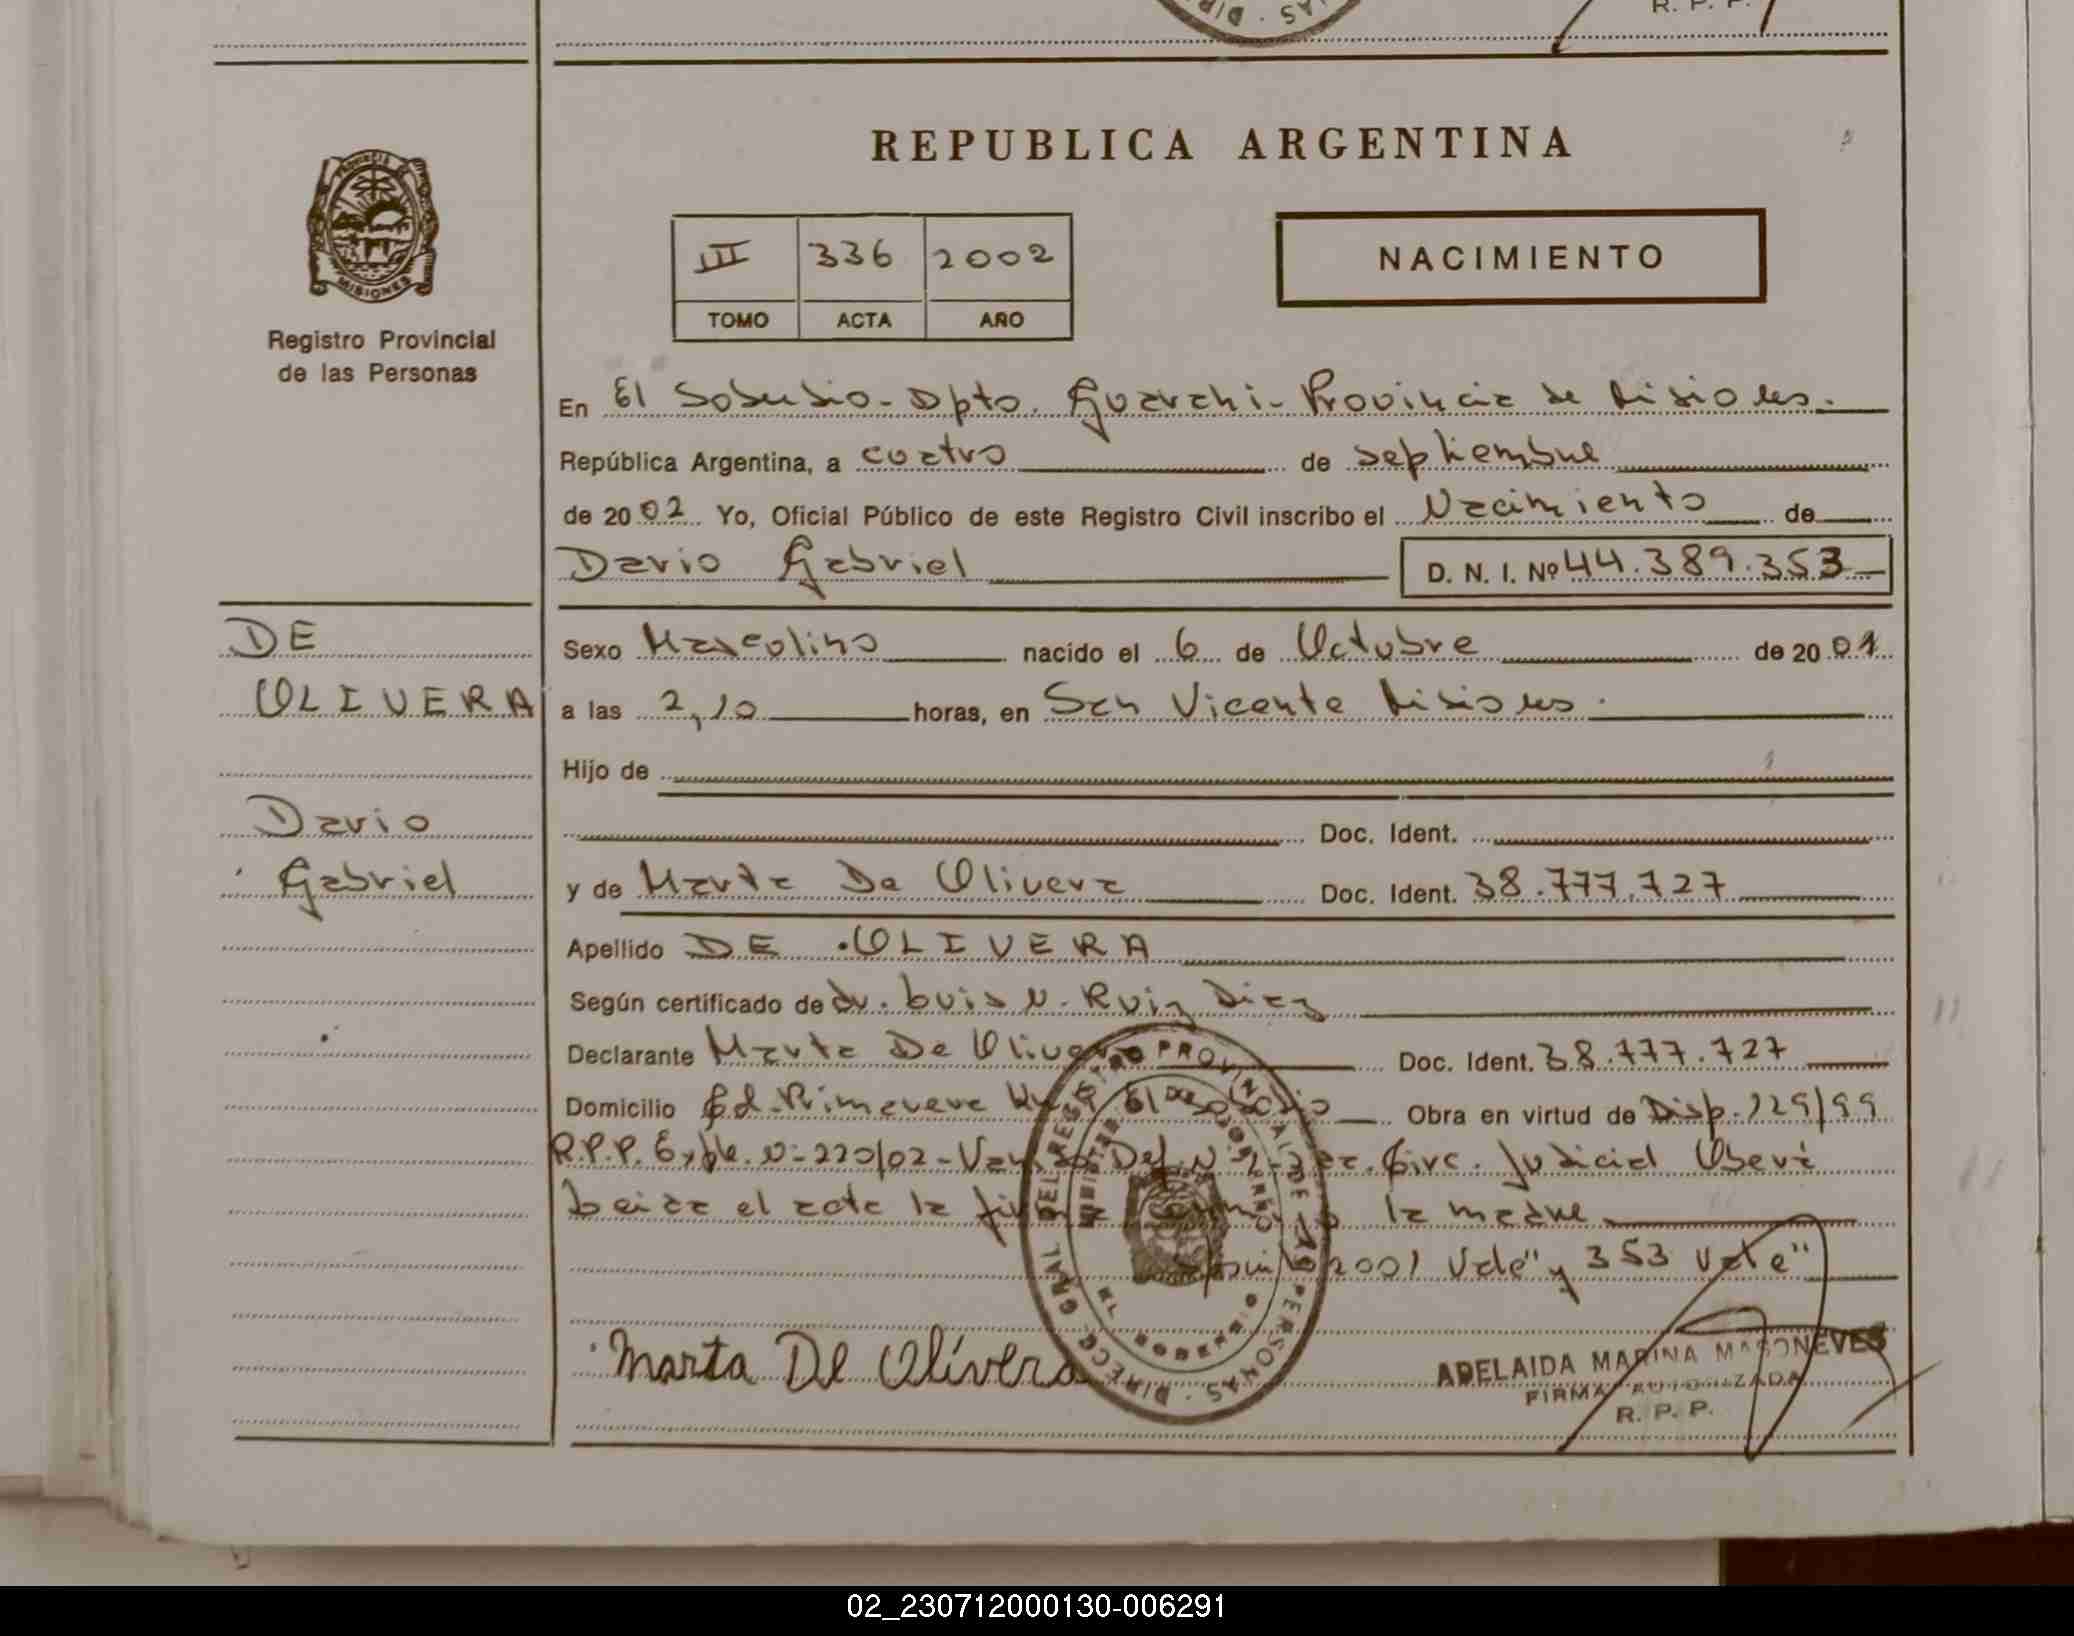 R. P. P.
DIR · AS
REPUBLICA ARGENTINA
PROVINCIA
MISIONES
Registro Provincial
de las Personas
III 336 2002
TOMO ACTA AÑO
NACIMIENTO
En El Soberbio - Dpto. Guarani - Provincia de Misiones.
República Argentina, a cuatro de septiembre
de 2002 Yo, Oficial Público de este Registro Civil inscribo el Nacimiento de
Dario Gabriel D. N. I. Nº 44.389.353
DE
OLIVERA
Dario
Gabriel
Sexo Masculino nacido el 6 de Octubre de 2001
a las 2,10 horas, en San Vicente Misiones.
Hijo de
Doc. Ident.
y de Marta De Olivera Doc. Ident. 38.777.727
Apellido DE OLIVERA
Según certificado de dr. Luis N. Ruiz Diaz
Declarante Marta De Olivera Doc. Ident. 38.777.727
Domicilio Primavera El Soberbio Obra en virtud de Disp. 129/99
R.P.P. Expte. N- 220/02 - Def. N Circ. Judicial Oberá
el acta la la madre
2001 Vale" y 353 Vale"
DIRECC. GRAL DEL REGISTRO PROVINCIAL DE LAS PERSONAS
Marta De Olivera
ADELAIDA MARINA MASONEVES
FIRMA AUTORIZADA
R. P. P.
02_230712000130-006291